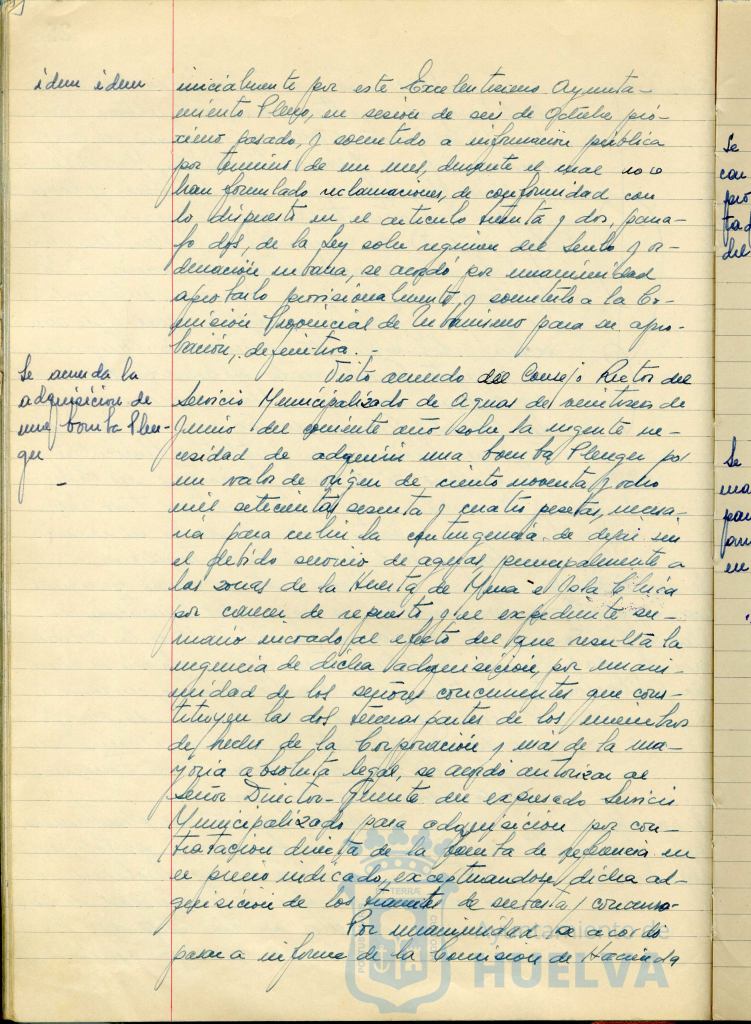 idem idem
inicialmente por este Excelentísimo Ayunta-
miento Pleno, en sesión de seis de Octubre pró-
ximo pasado, y sometido a información pública
por término de un mes, durante el cual no se
han formulado reclamaciones, de conformidad con
lo dispuesto en el artículo treinta y dos, párra-
fo dos, de la Ley sobre regimen del Suelo y or-
denación urbana, se acordó por unanimidad
aprobarlo provisionalmente, y someterlo a la Co-
misión Provincial de Urbanismo para su apro-
bación, definitiva.-
Se acuerda la
adquisición de
una bomba Plen-
ger
-
Visto acuerdo del Consejo Rector del
Servicio Municipalizado de Aguas de veintiseis de
Junio del corriente año sobre la urgente ne-
cesidad de adquirir una bomba Plenger por
un valor de origen de ciento noventa y ocho
mil setecientas sesenta y cuatro pesetas, necesa-
ria para cubrir la contingencia de dejar sin
el debido servicio de aguas, principalmente a
las zonas de la Huerta de Mena e Isla Chica
por carecer de repuesto, y el expediente su-
mario incoado al efecto del que resulta la
urgencia de dicha adquisición, por unani-
midad de los señores concurrentes que cons-
tituyen las dos terceras partes de los miembros
de hecho de la Corporación y más de la ma-
yoria absoluta legal, se acordó autorizar al
Señor Director-Gerente del expresado Servicio
Municipalizado para adquisición por con-
tratación directa de la bomba de referencia en
el precio indicado, exceptuandose dicha ad-
quisición de los tramites de subasta y concurso-
Por unanimidad se acordó
pasar a informe de la Comisión de Hacienda
Ayuntamiento de
HUELVA
Se
con
pro
tad
del
Se
ma
par
en